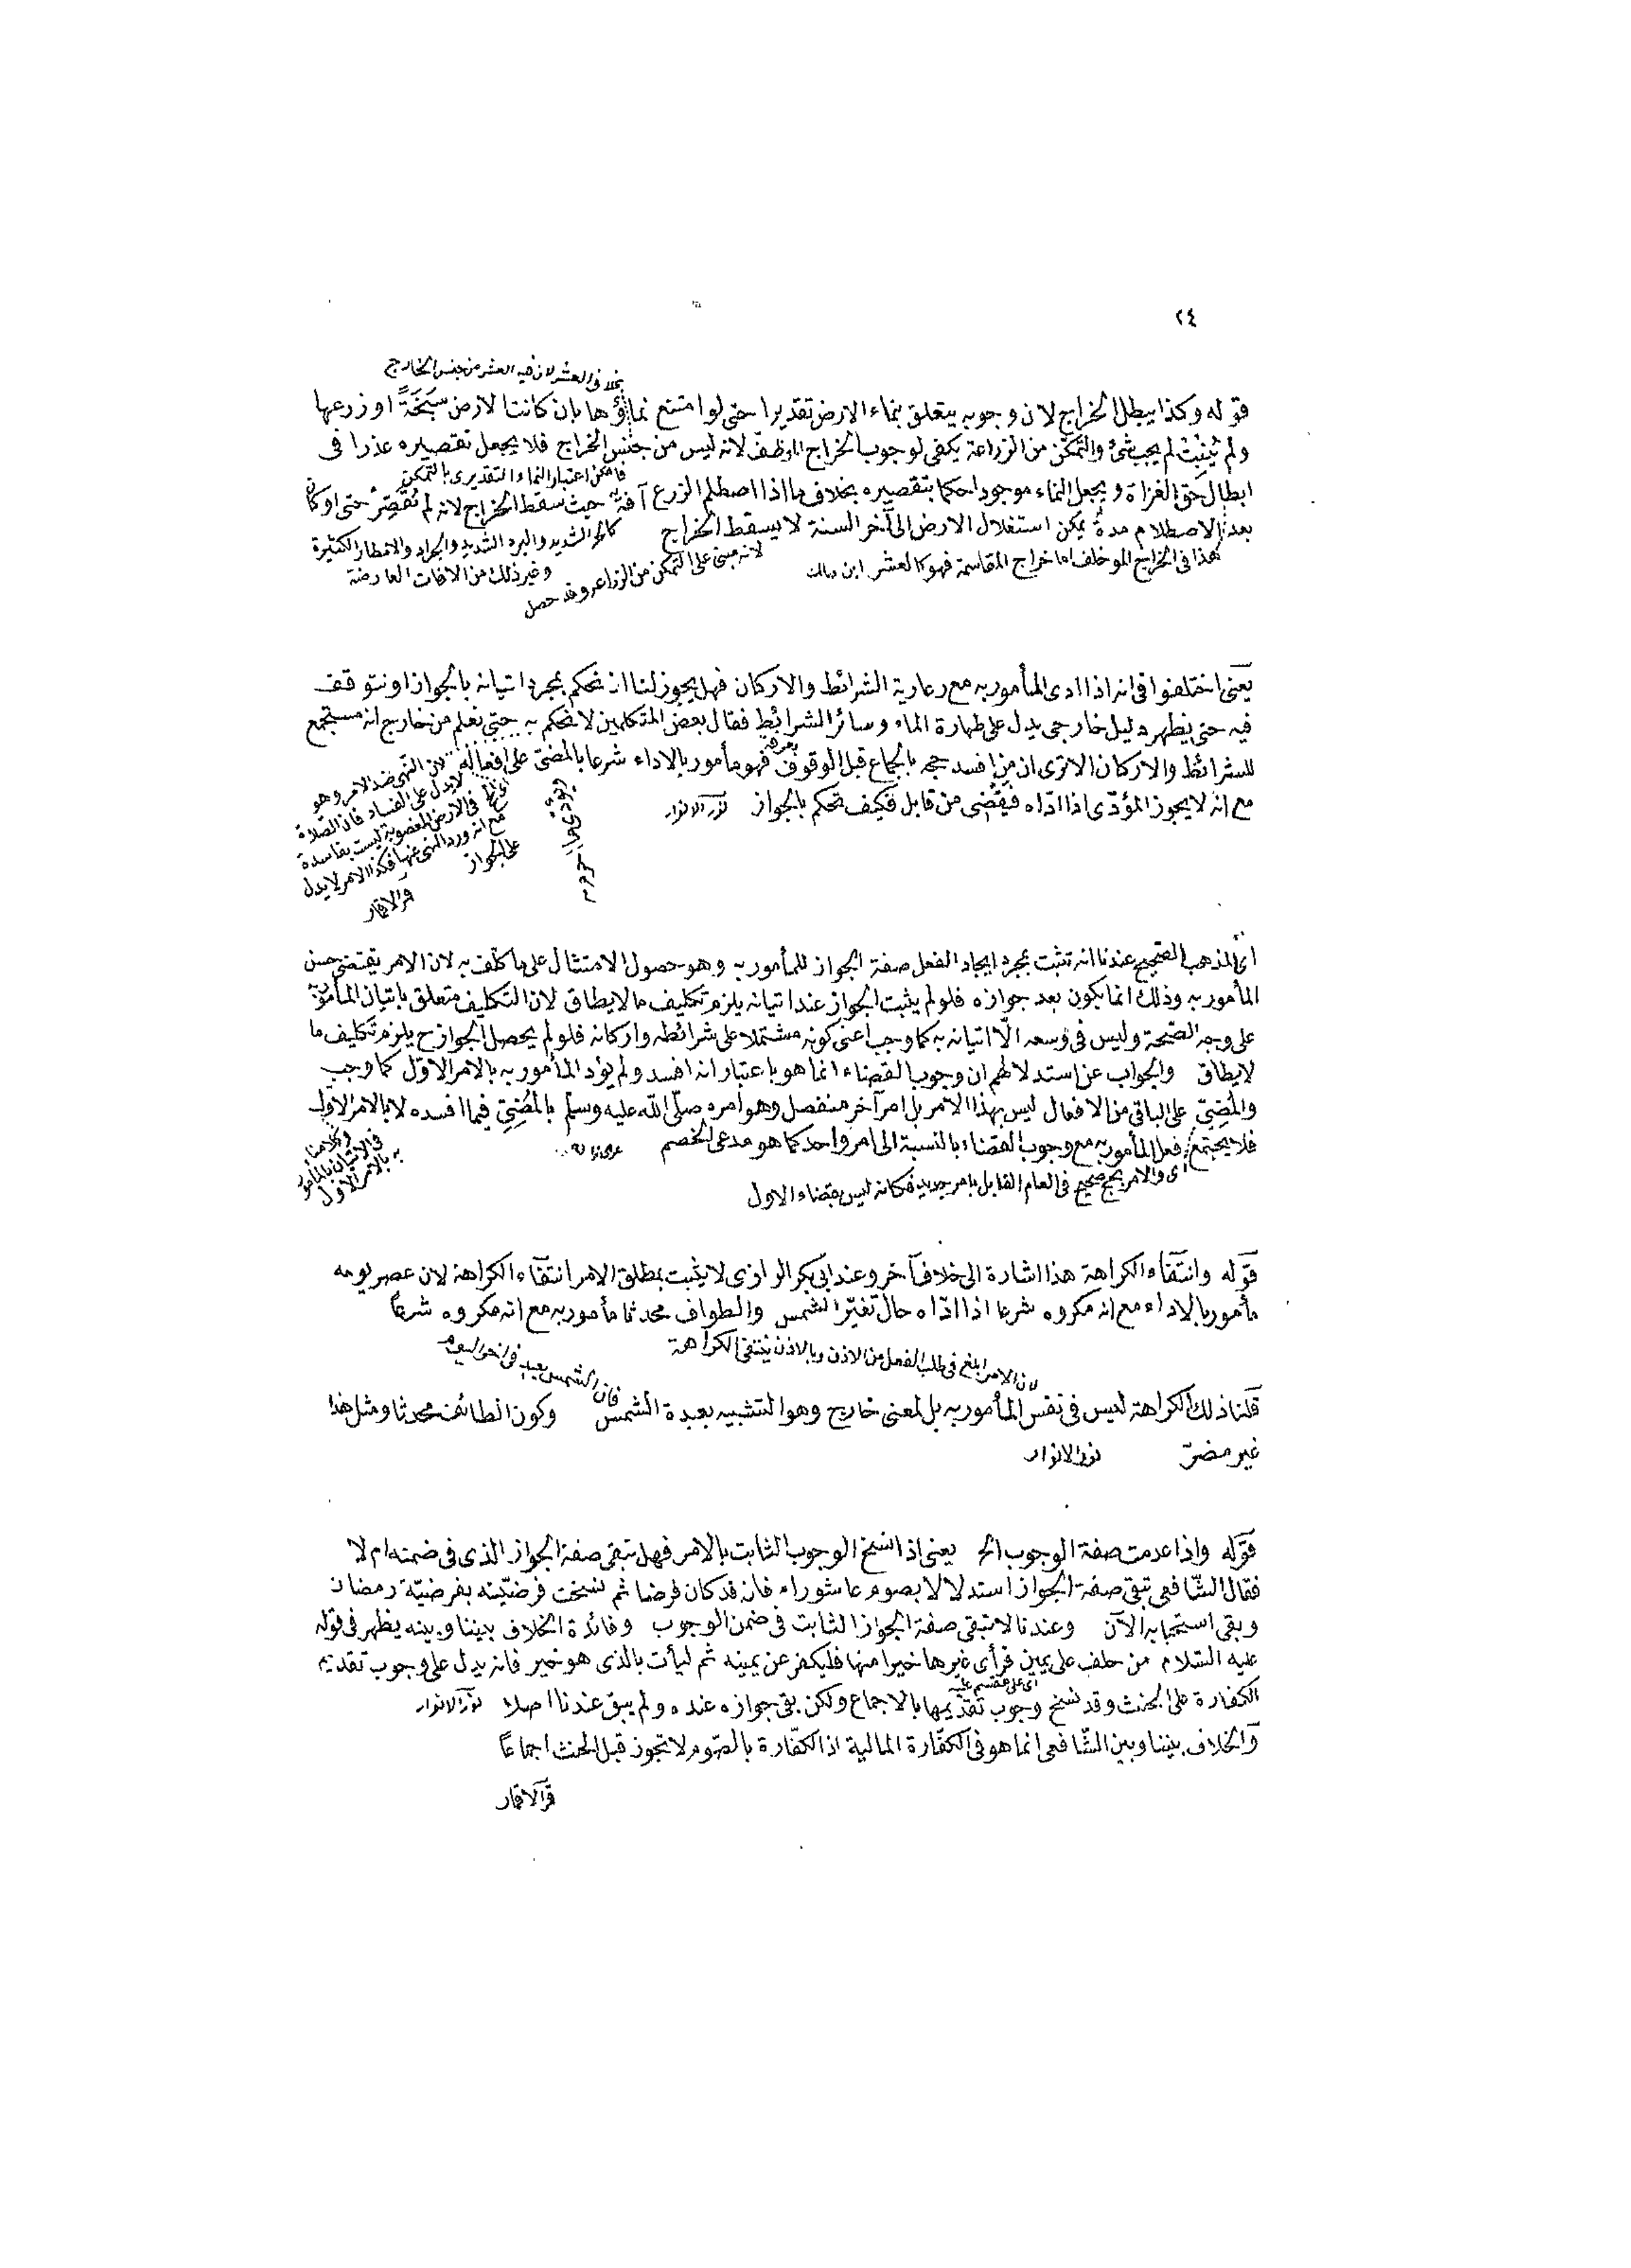 ٢٤
بخلاف العشر لان فيه العشر من جنس الخارج
قوله وكذا يبطل الخراج لان وجوبه يتعلق بنماء الارض تقديرا حتى لو امتنع نماؤها بان كانت الارض سَبَخَةً او زرعها
ولم تنبت لم يجب شئ والتمكّن من الزراعة يكفى لوجوب الخراج الموظف لانه ليس من جنس الخراج فلا يجعل تقصيره عذرا فى
فامكن اعتبار النماء التقديرى بالتمكن
ابطال حق الغزاة ويجعل النماء موجودا حكما بتقصيره بخلاف ما اذا اصطلم الزرع آفة حيث سقط الخراج لانه لم يُقَصِّرْ حتى لو كان
بعد الاصطلام مدة يمكن استغلال الارض الى آخر السنة لا يسقط الخراج
كالحر الشديد والبرد الشديد والجراد والامطار الكثيرة
وغير ذلك من الآفات العارضة
هذا فى الخراج الموظف اما خراج المقاسمة فهو كالعشر ابن مالك
لانه مبنى على التمكن من الزراعة وقد حصل
يعنى اختلفوا فى انه اذا ادى المأمور به مع رعاية الشرائط والاركان فهل يجوز لنا ان نحكم بمجرد اتيانه بالجواز او نتوقف
فيه حتى يظهر دليل خارجى يدل على طهارة الماء وسائر الشرائط فقال بعض المتكلمين لا نحكم به حتى نعلم من خارج انه مستجمع
للشرائط والاركان الا ترى ان من افسد حجه بالجماع قبل الوقوف فهو مأمور بالاداء شرعا بالمضى على افعاله
بعرفة
مع انه لا يجوز المؤدّى اذا ادّاه فيقضى من قابل فكيف نحكم بالجواز نور الانوار
لان النهى ضد الامر وهو
لا يدل على الفساد فان الصلاة
فى الارض المغصوبة ليست بفاسدة
مع انه ورد النهى عنها فكذا الامر لا يدل
على الجواز
قمر الاقمار
اى المذهب الصحيح عندنا انه تثبت بمجرد ايجاد الفعل صفة الجواز للمأمور به وهو حصول الامتثال على ما كلف به لان الامر يقتضى حسن
المأمور به وذلك انما يكون بعد جوازه فلو لم يثبت الجواز عند اتيانه يلزم تكليف ما لا يطاق لان التكليف متعلق باتيان المأمور به
على وجه الصحة وليس فى وسعه الّا اتيانه به كما وجب اعنى كونه مشتملا على شرائطه واركانه فلو لم يحصل الجواز ح يلزم تكليف ما
لا يطاق والجواب عن استدلالهم ان وجوب القضاء انما هو باعتبار انه افسد ولم يؤد المأمور به بالامر الاوّل كما وجب
والمُضِىّ على الباقى من الافعال ليس بهذا الامر بل امر آخر منفصل وهو امره صلّى اللّه عليه وسلّم بالمُضِىِّ فيما افسده لا بالامر الاول
فلا يجتمع فعل المأمور به مع وجوب القضاء بالنسبة الى امر واحد كما هو مدعى الخصم
وكلامنا
فى الاتيان بالمأمور
به بالامر الاول
اى والامر بحج صحيح فى العام القابل بامر جديد فكانه ليس بقضاء الاول
قوله وانتفاء الكراهة هذا اشارة الى خلاف آخر وعند ابى بكر الرازى لا يثبت بمطلق الامر انتفاء الكراهة لان عصر يومه
مأمور بالاداء مع انه مكروه شرعا اذا ادّاه حال تغيّر الشمس والطواف محدثا مأمور به مع انه مكروه شرعًا
لان الامر ابلغ فى طلب الفعل من الاذن وبالاذن ينتفى الكراهة
قلنا ذلك الكراهة ليس فى نفس المأمور به بل لمعنى خارج وهو التشبيه بعبدة الشمس وكون الطائف محدثا ومثل هذا
غير مضرّ نور الانوار
قوله واذا عدمت صفة الوجوب الخ يعنى اذا نسخ الوجوب الثابت بالامر فهل تبقى صفة الجواز الذى فى ضمنه ام لا
فقال الشّافعى تبقى صفة الجواز استدلالا بصوم عاشوراء فانه قد كان فرضا ثم نسخت فرضيّته بفرضيّة رمضان
وبقى استحبابه الآن وعندنا لا تبقى صفة الجواز الثابت فى ضمن الوجوب وفائدة الخلاف بيننا وبينه يظهر فى قوله
عليه السّلام من حلف على يمين فرأى غيرها خيرا منها فليكفر عن يمينه ثم ليأت بالذى هو خير فانه يدل على وجوب تقديم
اى على مقسم عليه
الكفارة على الحنث وقد نسخ وجوب تقديمها بالاجماع ولكن بقى جوازه عنده ولم يبق عندنا اصلا نور الانوار
والخلاف بيننا وبين الشّافعى انما هو فى الكفّارة المالية اذ الكفّارة بالصّوم لا تجوز قبل الحنث اجماعًا
قمر الاقمار